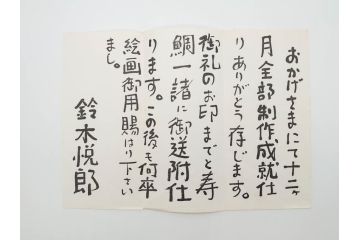 おかげさまにて十二ヶ
月全部制作成就仕
りありがとう存じます。
御礼のお印までと寿
鯛一諸に御送附仕
ります。この後も何卒
絵画御用賜はり下さい
まし。
鈴木悦郎